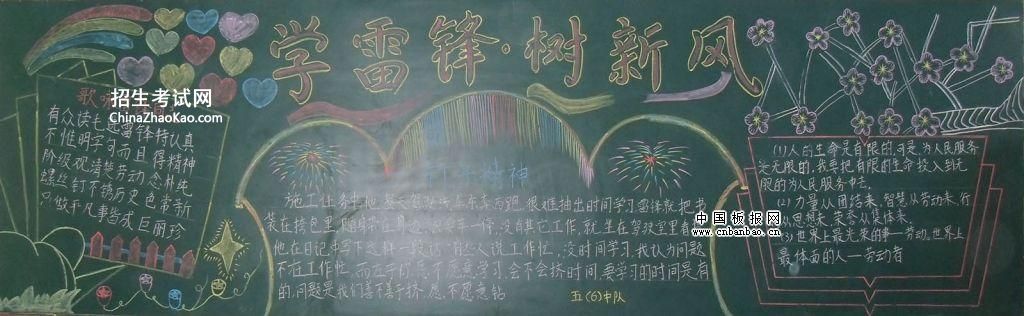 学雷锋·树新风
招生考试网
ChinaZhaoKao.com
歌
有众读毛 雷锋特认真
不惟明学习而且得精神
阶级观清楚劳动念朴纯
螺丝钉不锈历史色常新
只做平凡事皆成巨丽珍
钉子精神
施工任务 他每天 东奔西跑 很难抽出时间学习雷锋就把书
装在挎包里 没有其它工作,就坐在驾驶室里看
他在日记中写下 有些人说工作忙,没时间学习,我认为问题
不在工作忙,而在于你愿不愿意学习,会不会挤时间,要学习的时间是有
的,问题是我们善不善于挤,愿不愿意钻
五(6)中队
(1)人的生命是有限的,可是为人民服务
是无限的,我要把有限的生命投入到无
限的为人民服务中去。
(2)力量从团结来,智慧从劳动来,行
从思想来,荣誉从集体来。
(3)世界上最光荣的事—劳动。世界上
最体面的人—劳动者
中国板报网
cnbanbao.cn